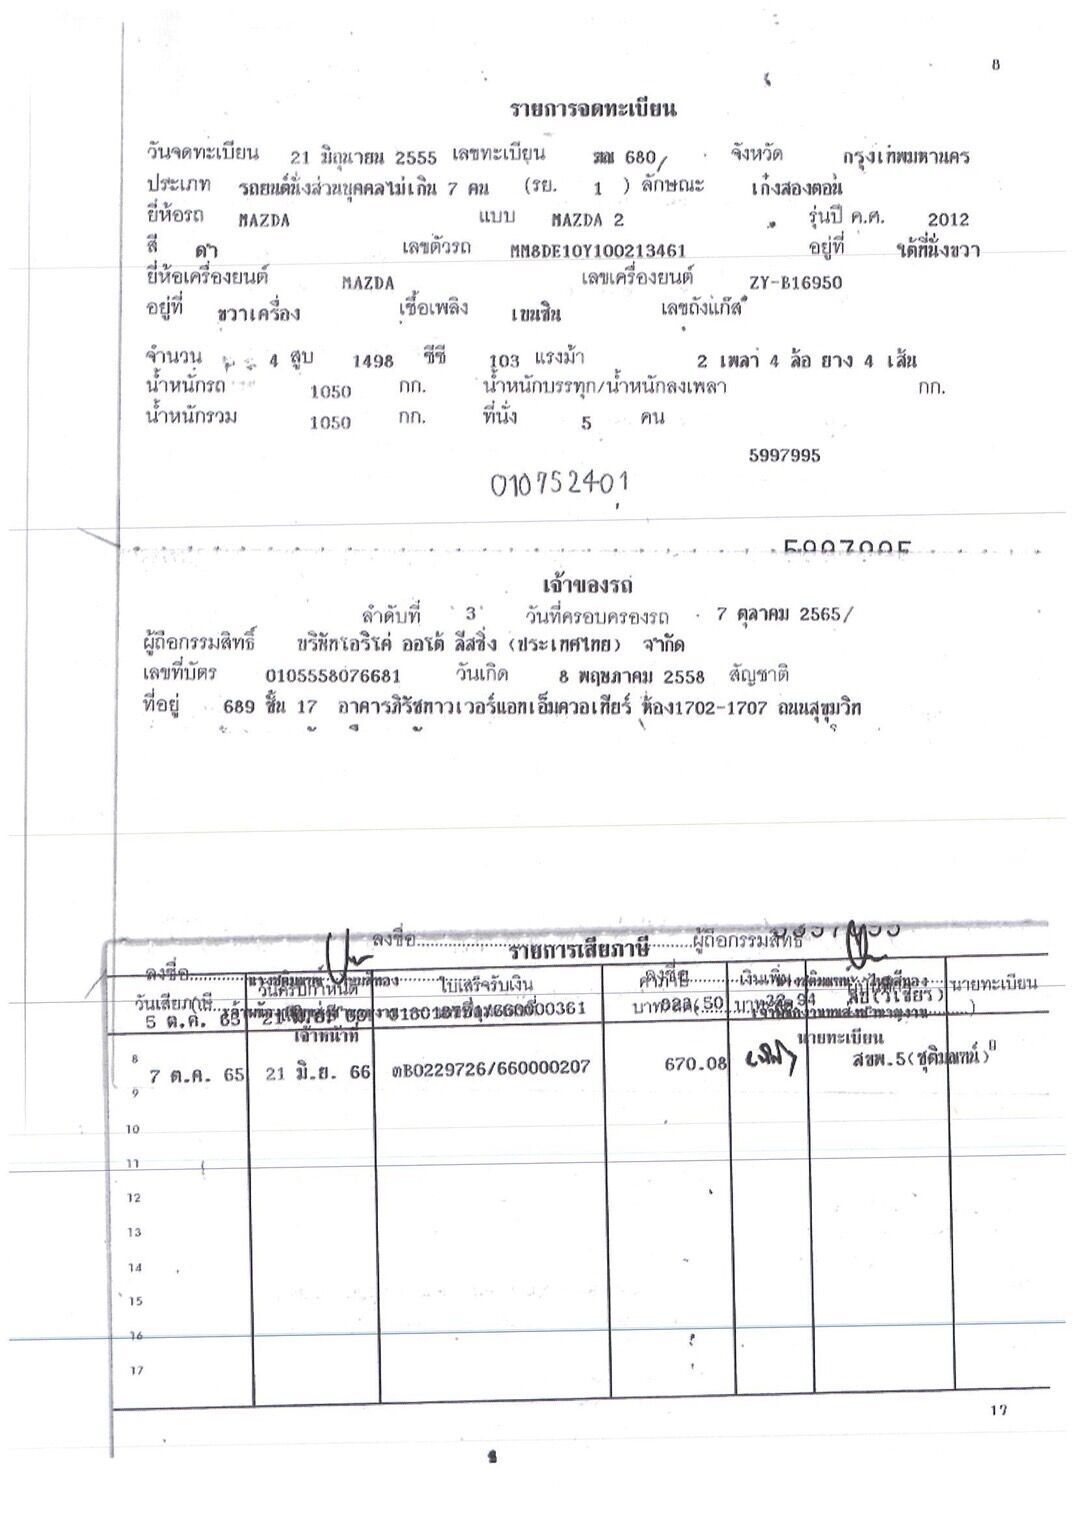 8
รายการจดทะเบียน
วันจดทะเบียน 21 มิถุนายน 2555 เลขทะเบียน 680/ จังหวัด กรุงเทพมหานคร
ประเภท รถยนต์นั่งส่วนบุคคลไม่เกิน 7 คน (รย. 1 ) ลักษณะ เก๋งสองตอน
ยี่ห้อรถ MAZDA แบบ MAZDA 2 รุ่นปี ค.ศ. 2012
สี ดำ เลขตัวรถ MM8DE10Y100213461 อยู่ที่ ใต้ที่นั่งขวา
ยี่ห้อเครื่องยนต์ MAZDA เลขเครื่องยนต์ ZY-B16950
อยู่ที่ ขวาเครื่อง เชื้อเพลิง เบนซิน เลขถังแก๊ส
จำนวน 4 สูบ 1498 ซีซี 103 แรงม้า 2 เพลา 4 ล้อ ยาง 4 เส้น
น้ำหนักรถ 1050 กก. น้ำหนักบรรทุก/น้ำหนักลงเพลา กก.
น้ำหนักรวม 1050 กก. ที่นั่ง 5 คน
5997995
010752401
5997995
เจ้าของรถ
ลำดับที่ 3 วันที่ครอบครองรถ 7 ตุลาคม 2565/
ผู้ถือกรรมสิทธิ์ บริษัทโอริโค่ ออโต้ ลีสซิ่ง (ประเทศไทย) จำกัด
เลขที่บัตร 0105558076681 วันเกิด 8 พฤษภาคม 2558 สัญชาติ
ที่อยู่ 689 ชั้น 17 อาคารภิรัชทาวเวอร์แอทเอ็มควอเทียร์ ห้อง1702-1707 ถนนสุขุมวิท
ลงชื่อ ผู้ถือกรรมสิทธิ์
รายการเสียภาษี
ลงชื่อ ลงชื่อ
วันเสียภาษี วันครบกำหนด ใบเสร็จรับเงิน ค่าภาษี เงินเพิ่ม นายทะเบียน
5 ต.ค. 65
เจ้าหน้าที่ นายทะเบียน
8 7 ต.ค. 65 21 มิ.ย. 66 ตB0229726/660000207 670.08 สขพ.5(ชุติมณฑน์)
9
10
11
12
13
14
15
16
17
17